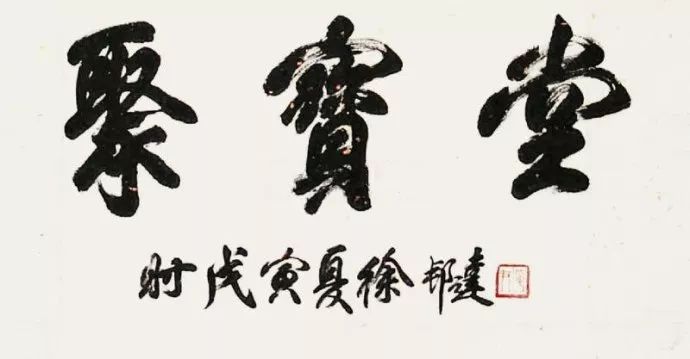 聚寳堂
时戊寅夏徐邦達